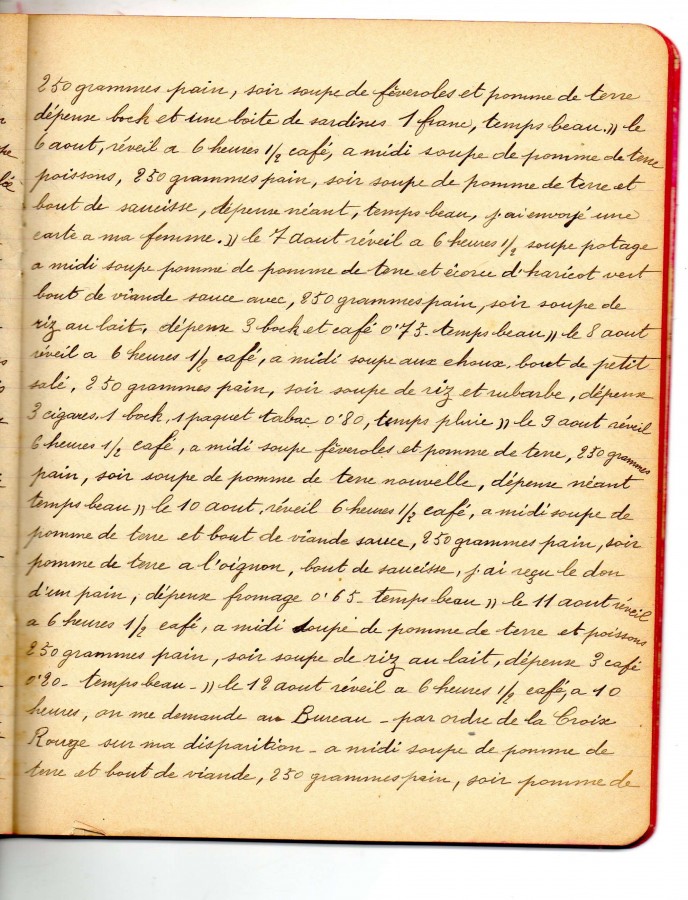 250 grammes pain, soir soupe de fèveroles et pomme de terre
dépense bock et une boite de sardines 1 franc, temps beau.)) le
6 aout, réveil a 6 heures 1/2 café, a midi soupe de pomme de terre
poissons, 250 grammes pain, soir soupe de pomme de terre et
bout de saucisse, dépense néant, temps beau, j'ai envoyé une
carte a ma femme.)) le 7 aout réveil a 6 heures 1/2 soupe potage
a midi soupe pomme de pomme de terre et écorce d'haricot vert
bout de viande sauce avec, 250 grammes pain, soir soupe de
riz au lait, dépense 3 bock et café 0'75- temps beau)) le 8 aout
réveil a 6 heures 1/2 café, a midi soupe aux choux, bout de petit
salé, 250 grammes pain, soir soupe de riz et rubarbe, dépense
3 cigares, 1 bock, 1 paquet tabac 0'80, temps pluie)) le 9 aout réveil
6 heures 1/2 café, a midi soupe fèveroles et pomme de terre, 250 grammes
pain, soir soupe de pomme de terre nouvelle, dépense néant
temps beau)) le 10 aout, réveil 6 heures 1/2 café, a midi soupe de
pomme de terre et bout de viande sauce, 250 grammes pain, soir
pomme de terre a l'oignon, bout de saucisse, j'ai reçu le don
d'un pain, dépense fromage 0'65- temps beau)) le 11 aout réveil
a 6 heures 1/2 café, a midi soupe de pomme de terre et poissons
250 grammes pain, soir soupe de riz au lait, dépense 3 café
0'20- temps beau-)) le 12 aout réveil a 6 heures 1/2 café, a 10
heures, on me demande au Bureau - par ordre de la Croix
Rouge sur ma disparition - a midi soupe de pomme de
terre et bout de viande, 250 grammes pain, soir pomme de